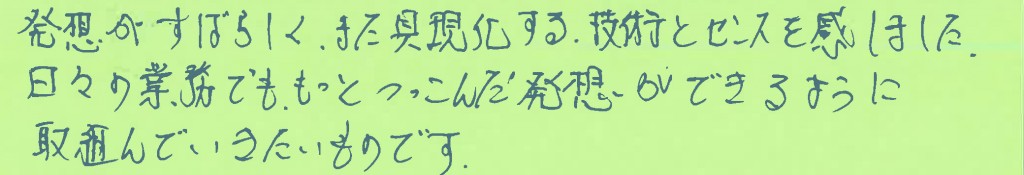 発想がすばらしく、また具現化する、技術とセンスを感じました.
日々の業務でも、もっとつっこんだ発想ができるように
取組んでいきたいものです.